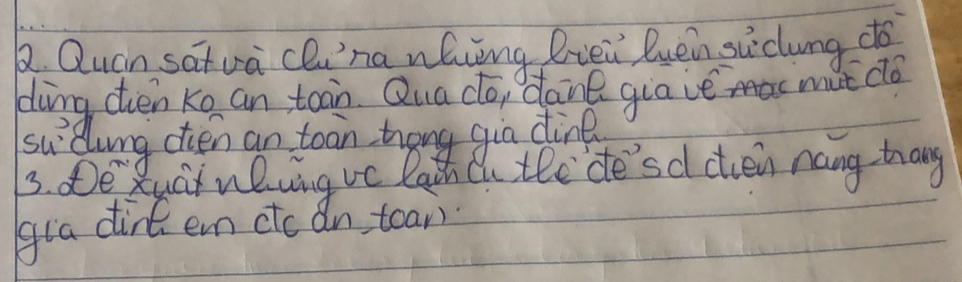 2. Quan sát và chỉ ra những biểu hiện sử dụng đồ
dùng điện ko an toàn. Qua đó, đánh giá về mức độ
sử dụng điện an toàn trong gia đình
3. Đề xuất những vc làm cụ thể để sd điện năng trong
gia đình em đc an toàn.